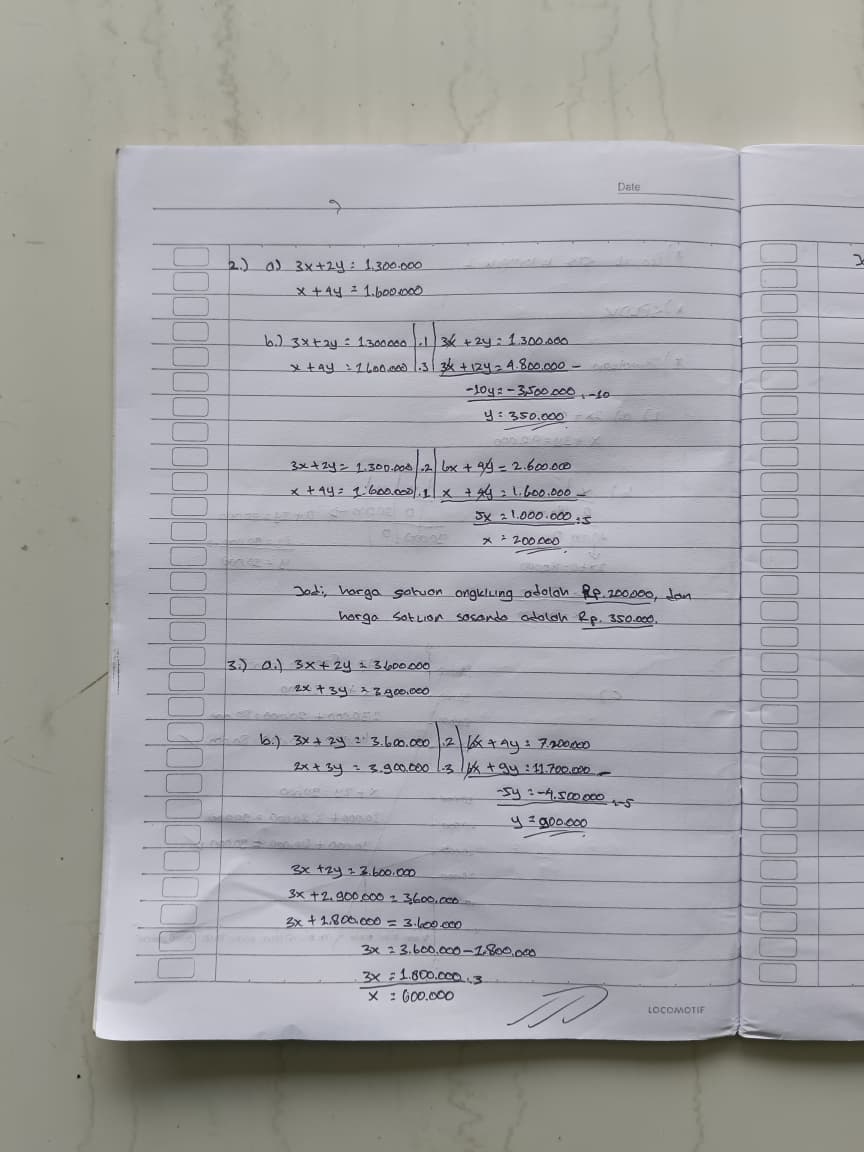 Date
2.) a) 3x+2y = 1.300.000
x + 4y = 1.600.000
b.) 3x+2y = 1.300.000 | .1 | 3x + 2y = 1.300.000
x + 4y = 1.600.000 | .3 | 3x + 12y = 4.800.000 -
-10y = -3.500.000 : -10
y = 350.000
3x+2y = 1.300.000 | .2 | 6x + 4y = 2.600.000
x + 4y = 1.600.000 | .1 | x + 4y = 1.600.000 -
5x = 1.000.000 : 5
x = 200.000
Jadi, harga satuan angklung adalah Rp. 200.000, dan
harga satuan sasando adalah Rp. 350.000.
3.) a.) 3x + 2y = 3.600.000
2x + 3y = 3.900.000
b.) 3x + 2y = 3.600.000 | .2 | 6x + 4y = 7.200.000
2x + 3y = 3.900.000 | .3 | 6x + 9y = 11.700.000 -
-5y = -4.500.000 : -5
y = 900.000
3x + 2y = 3.600.000
3x + 2.900.000 = 3.600.000
3x + 1.800.000 = 3.600.000
3x = 3.600.000 - 1.800.000
3x = 1.800.000 : 3
x = 600.000
LOCOMOTIF